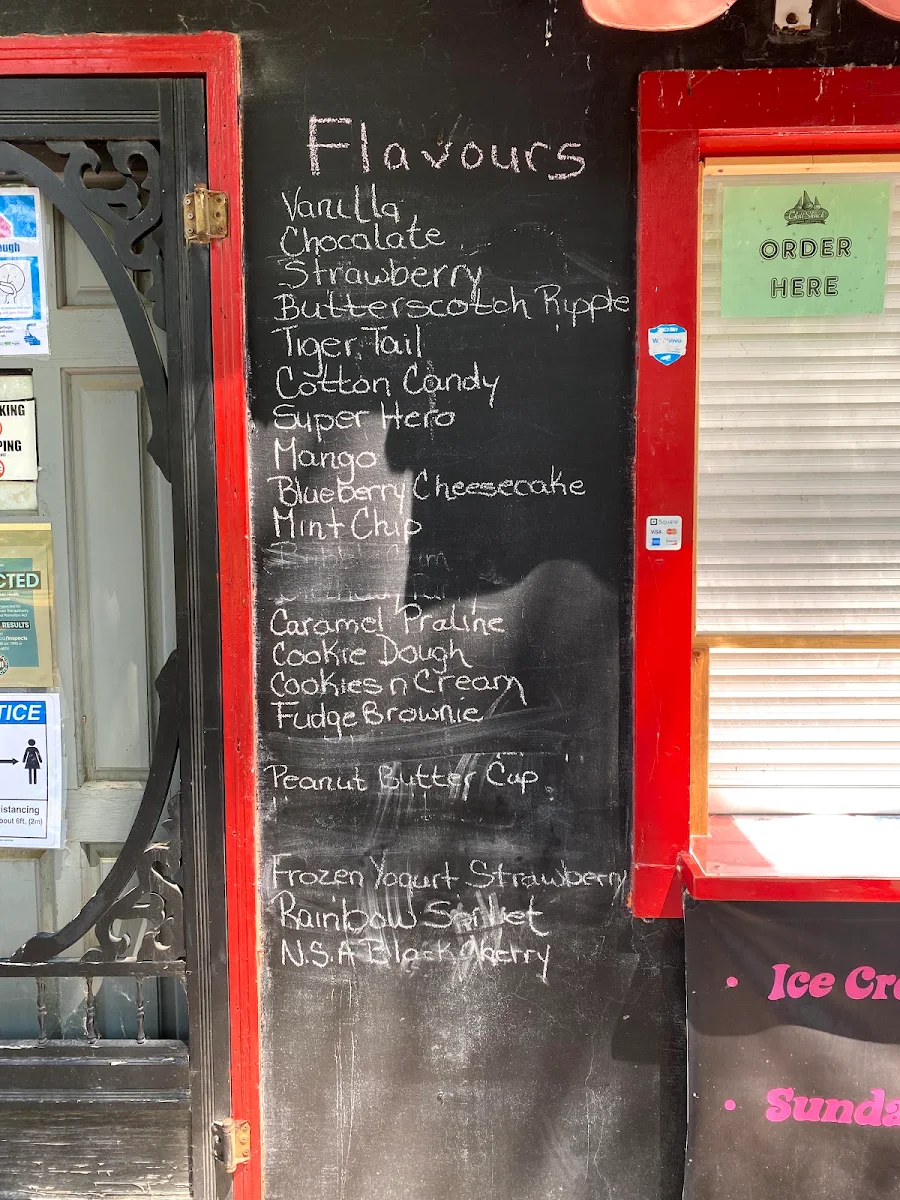 Flavours
Vanilla
Chocalate
Strawberry
Butterscotch Ripple
Tiger Tail
Cotton Candy
Super Hero
Mango
Blueberry Cheesecake
Mint Chip
Caramel Praline
Cookie Dough
Cookies n Cream
Fudge Brownie
Peanut Butter Cup
Frozen Yogurt Strawberry
Rainbow Sorbet
N.S.A Black Cherry
ORDER
HERE
Square
VISA
Ice Cre
Sunda
ough
KING
PING
CTED
RESULTS
TICE
istancing
bout 6ft. (2m)